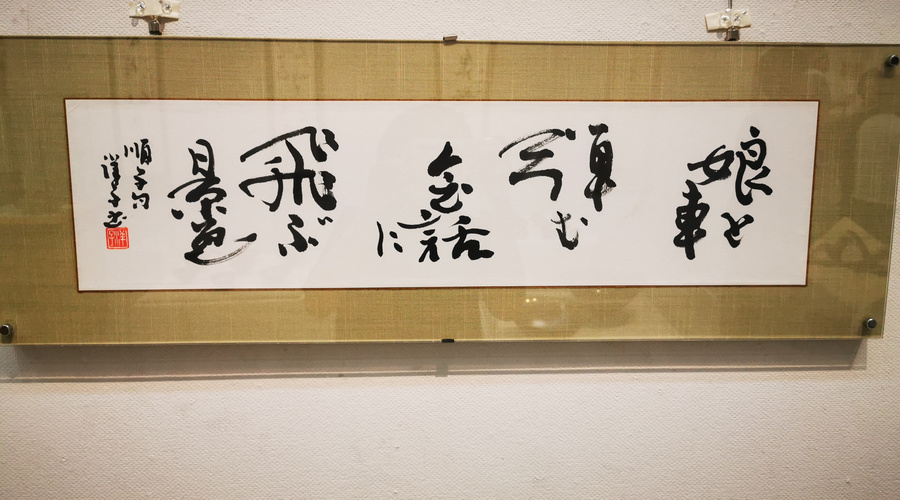 娘と
車
弾む
会話
に
飛ぶ
景色
順子句
洋子書